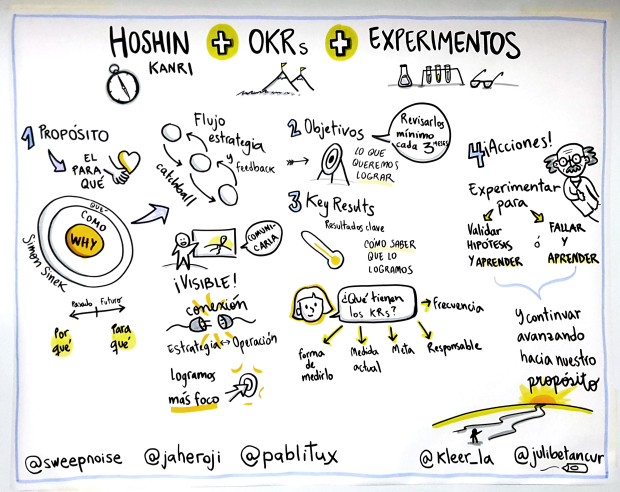 HOSHIN + OKRs + EXPERIMENTOS
KANRI
1 PROPÓSITO
EL
PARA
QUÉ
QUÉ
COMO
WHY
Simon Sinek
Pasado Futuro
Por
qué
Para
qué
Flujo
estrategia
y
feedback
catchball
COMUNI-
CARLA
¡VISIBLE!
conexión
Estrategia ↔ Operación
Logramos
más foco
2 Objetivos
Revisarlos
mínimo
cada 3 MESES
LO QUE
QUEREMOS
LOGRAR
3 Key Results
Resultados clave
CÓMO SABER
QUE LO
LOGRAMOS
¿Qué tienen
los KRs?
Frecuencia
Responsable
Meta
Medida
actual
forma
de
medirlo
4 ¡Acciones!
Experimentar
para
Validar
HIPÓTESIS
Y APRENDER
ó
FALLAR
Y
APRENDER
Y continuar
avanzando
hacia nuestro
propósito
@sweepnoise @jaheroji @pablitux @kleer_la @julibetancur